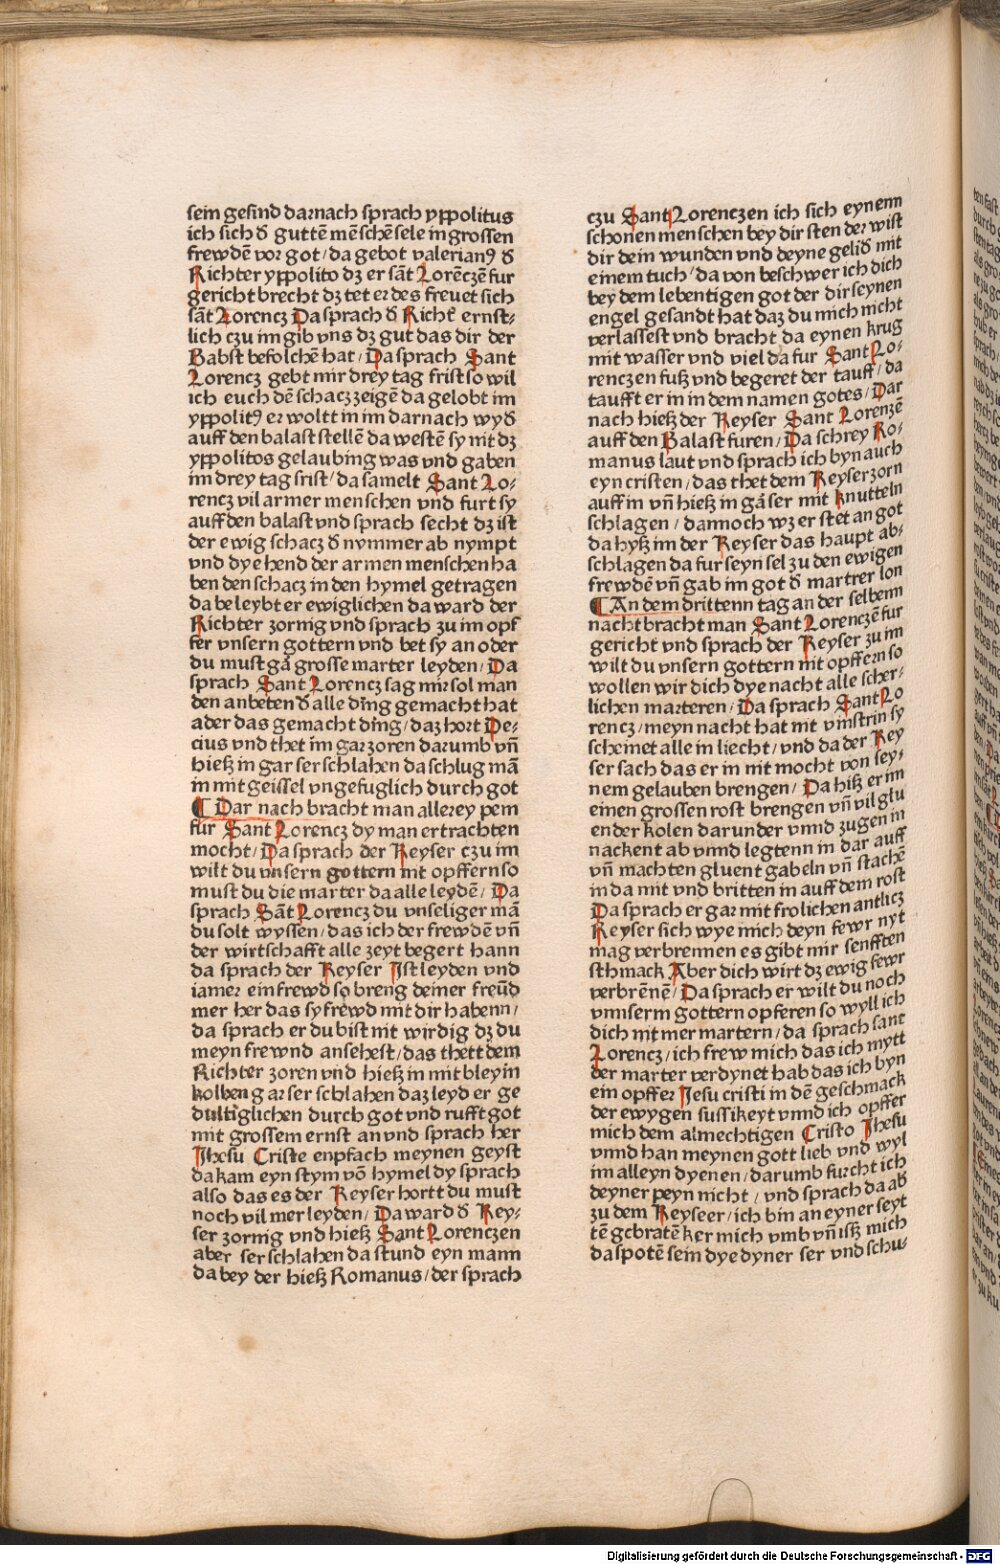 sein gesind darnach sprach yppolitus
ich sich đ guttē mēschē sele in grossen
frewdē vor got / da gebot valerianꝰ đ
Richter yppolito dz er sāt Lorēczē fur
gericht brecht dz tet er des frevet sich
sāt Lorencz Da sprach đ Richt̄ ernst⸗
lich czu im gib vns dz gut das dir der
Babst befolchē hat / Da sprach Sant
Lorencz gebt mir drey tag frist so wil
ich euch dē schacz zeigē da gelobt im
yppolitꝰ er woltt in im darnach wyđ
auff den balast stellē da westē sy nit dz
yppolitos gelaubing was vnd gaben
im drey tag frist / da samelt Sant Lo⸗
rencz vil armer menschen vnd furt sy
auff den balast vnd sprach secht dz ist
der ewig schacz đ nymmer ab nympt
vnd dye hend der armen menschen ha
ben den schacz in den hymel getragen
da beleybt er ewiglichen da ward der
Richter zornig vnd sprach zu im opf
fer vnsern gottern vnd bet sy an oder
du must gā grosse marter leyden / Da
sprach Sant Lorencz sag mir sol man
den anbeten đ alle dīng gemacht hat
ader das gemacht dīng / daz hort De⸗
cius vnd thet im gar zoren darumb vn̄
hieß in gar ser schlahen da schlug mā
in mit geissel vngefuglich durch got
¶ Dar nach bracht man allerey pem
fur Sant Lorencz dy man ertrachten
mocht / Da sprach der Keyser czu im
wilt du vnsern gottern nit opffern so
must du die marter da alle leydē / Da
sprach Sāt Lorencz du vnseliger mā
du solt wyssen / das ich der frewdē vn̄
der wirtschafft alle zeyt begert hann
da sprach der Keyser Ist leyden vnd
iamer ein frewd so breng deiner freūd
mer her das sy frewd mit dir habenn /
da sprach er du bist nit wirdig dz du
meyn frewnd ansehest / das thett dem
Richter zoren vnd hieß in mit bleyin
kolben gar ser schlahen daz leyd er ge
dultiglichen durch got vnd rufft got
mit grossem ernst an vnd sprach her
Jhesu Criste enpfach meynen geyst
da kam eyn stym vō hymel dy sprach
also das es der Keyser hortt du must
noch vil mer leyden / Da ward đ Key⸗
ser zornig vnd hieß Sant Lorenczen
aber ser schlahen da stund eyn mann
da bey der hieß Romanus / der sprach
czu Sant Lorenczen ich sich eynenn
schonen menschen bey dir sten der wist
dir dein wunden vnd deyne gelid mit
einem tuch / da von beschwer ich dich
bey dem lebentigen got der dir seynen
engel gesandt hat daz du mich nicht
verlassest vnd bracht da eynen krug
mit wasser vnd viel da fur Sant Lo⸗
renczen fuß vnd begeret der tauff / da
taufft er in in dem namen gotes / Dar
nach hieß der Keyser Sant Lorenzē
auff den Balast furen / Da schrey Ro⸗
manus laut vnd sprach ich byn auch
eyn cristen / das thet dem Keyser zorn
auff in vn̄ hieß in gāser mit knutteln
schlagen / dannoch wz er stet an got
da hyß im der Keyser das haupt ab⸗
schlagen da fur seyn sel zu den ewigen
frewdē vn̄ gab im got đ martrer lon
¶ An dem drittenn tag an der selbenn
nacht bracht man Sant Lorenczē fur
gericht vnd sprach der Keyser zu im
wilt du vnsern gottern nit opffern so
wollen wir dich dye nacht alle scher⸗
lichen marteren / Da sprach Sant Lo
rencz / meyn nacht hat nit vinstrin sy
scheinet alle in liecht / vnd da der Key
ser sach das er in nit mocht von sey⸗
nem gelauben brengen / Da hiß er im
einen grossen rost brengen vn̄ vil glu
ender kolen darunder vnnd zugen in
nackent ab vnnd legtenn in dar auff
vn̄ machten gluent gabeln vn̄ stachē
in da mit vnd britten in auff dem rost
Da sprach er gar mit frolichen antlicz
Keyser sich wye mich deyn fewr nyt
mag verbrennen es gibt mir senfften
schmack Aber dich wirt dz ewig fewr
verbrēnē / Da sprach er wilt du noch
vnnserm gottern opferen so wyll ich
dich nit mer martern / da sprach sant
Lorencz / ich frew mich das ich mytt
der marter verdynet hab das ich byn
ein opffer Jesu cristi in dē geschmack
der ewygen sussikeyt vnnd ich opffer
mich dem almechtigen Cristo Jhesu
vnnd han meynen gott lieb vnd wyl
im alleyn dyenen / darumb furcht ich
deyner peyn nicht / vnd sprach da ab
zu dem Keyseer / ich bin an eyner seyt
tē gebratē ker mich vmb vn̄ isß mich
da spotē sein dye dyner ser vnd schu⸗
Digitalisierung gefördert durch die Deutsche Forschungsgemeinschaft - DFG